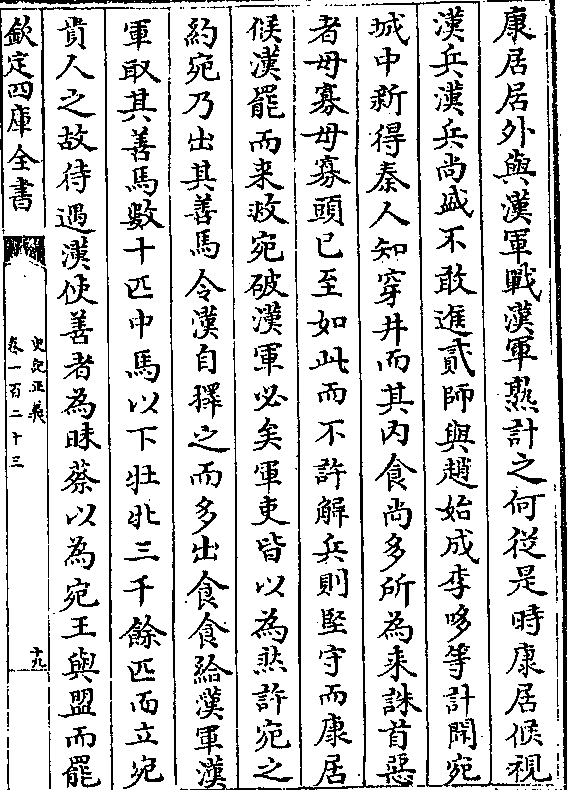 康居居外與漢軍戰漢軍熟計之何從是時康居候視
漢兵漢兵尚盛不敢進貳師與趙始成李哆等計聞宛
城中新得秦人知穿井而其內食尚多所為來誅首惡
者毋寡毋寡頭已至如此而不許解兵則堅守而康居
候漢罷而來救宛破漢軍必矣軍吏皆以為然許宛之
約宛乃出其善馬令漢自擇之而多出食食給漢軍漢
軍取其善馬數十匹中馬以下牡牝三千餘匹而立宛
貴人之故待遇漢使善者為昧蔡以為宛王與盟而罷
欽定四庫全書
史記正義
卷一百二十三
十九